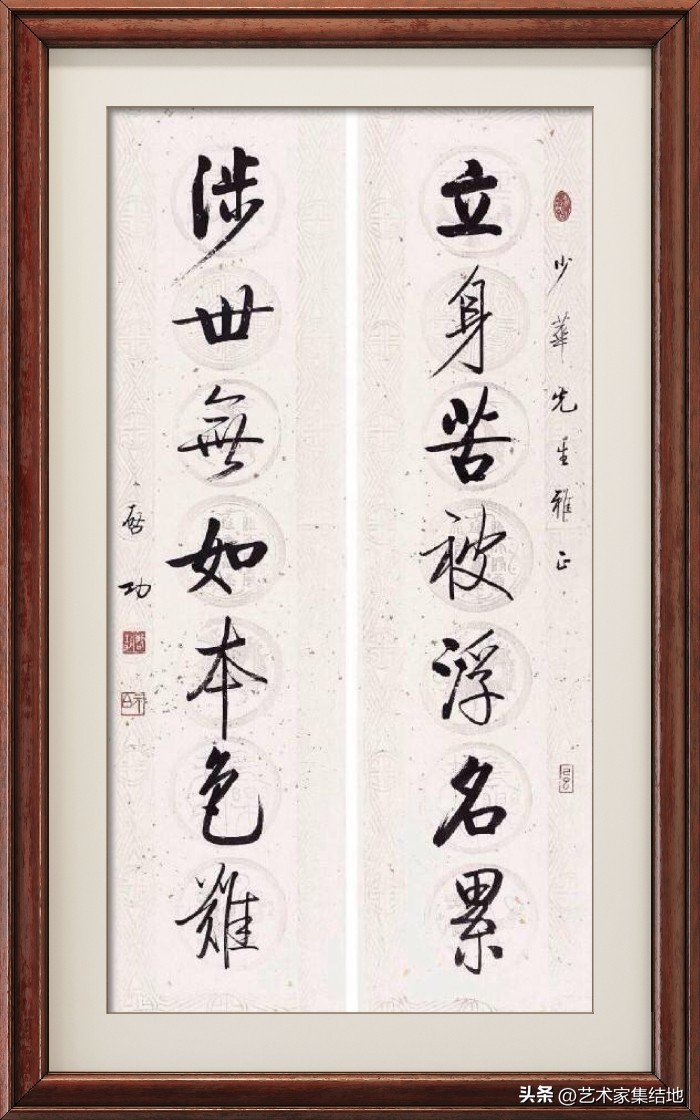 少華先生雅正
立身苦被浮名累
涉世無如本色難
啓功
头条 @艺术家集结地